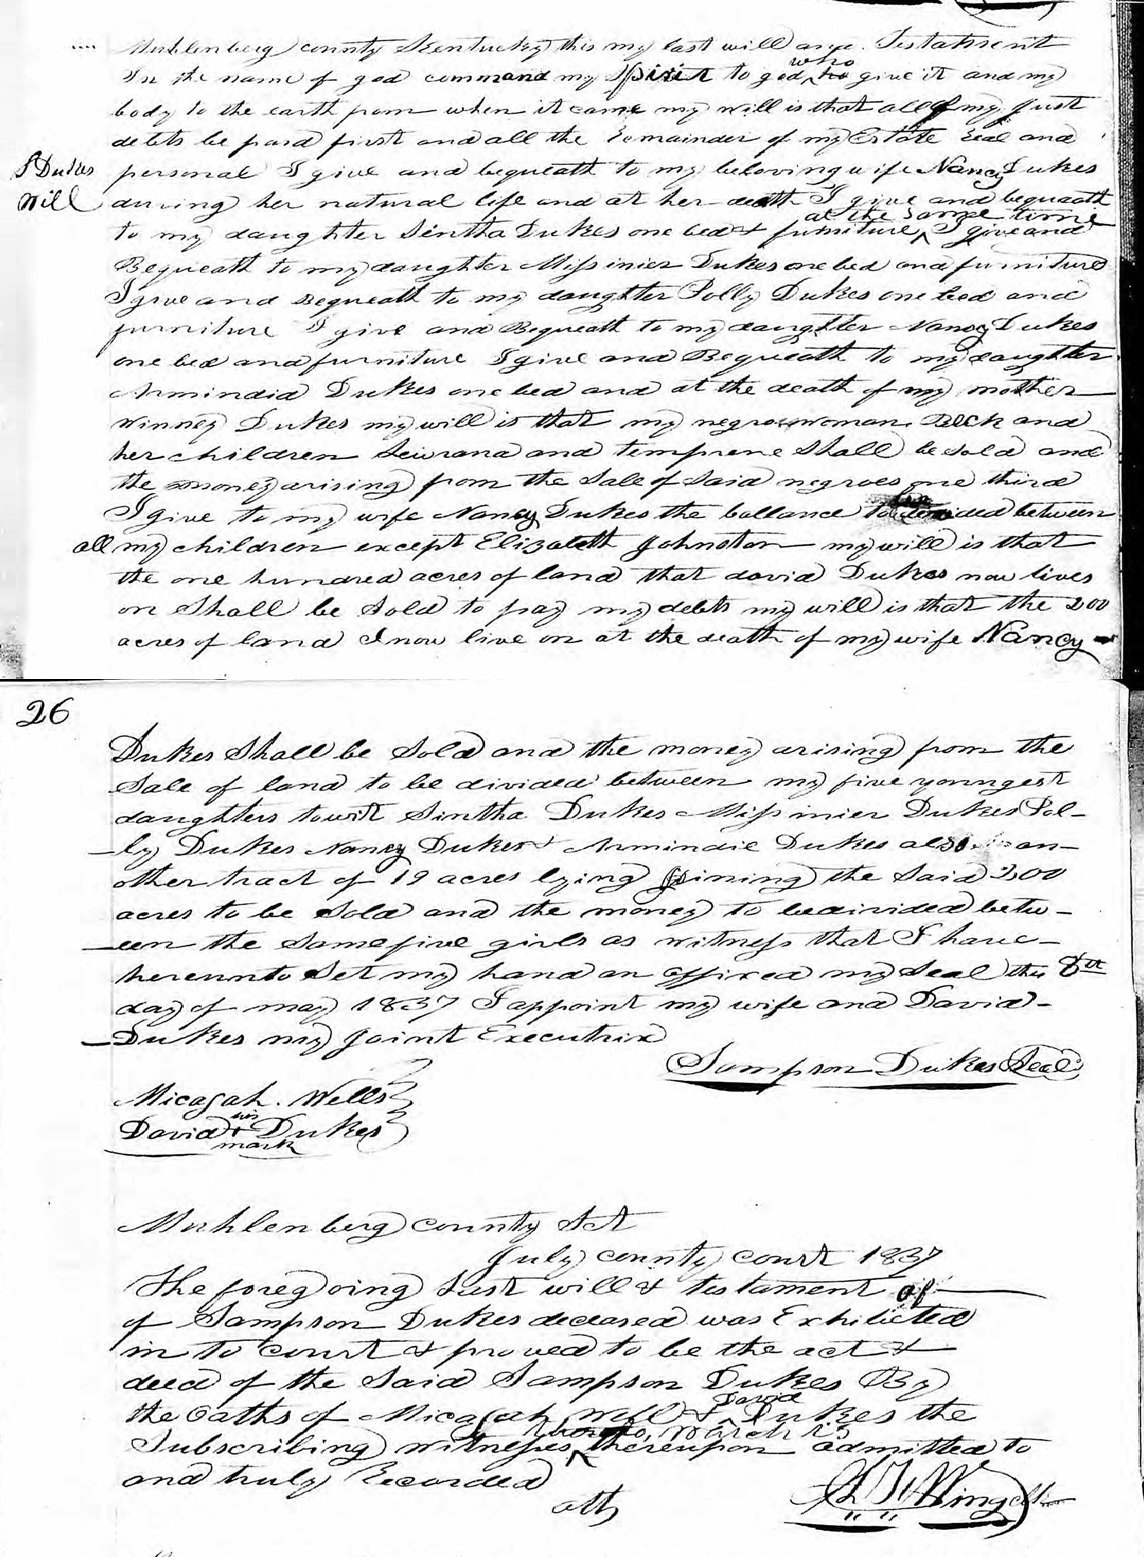 Muhlenberg county Kentucky this my last will and Testament
In the name of god command my Spirit to god who give it and my
body to the earth from when it came my will is that all of my just
debts be paid first and all the remainder of my Estate real and
S Dukes
Will
personal I give and bequeath to my beloving wife Nancy Dukes
during her natural life and at her death I give and bequeath
to my daughter Sintha Dukes one bed & furniture at the same time I give and
Bequeath to my daughter Missinier Dukes one bed and furniture
I give and Bequeath to my daughter Polly Dukes one bed and
furniture I give and Bequeath to my daughter Nancy Dukes
one bed and furniture I give and Bequeath to my daughter
Armindia Dukes one bed and at the death of my mother
Winney Dukes my will is that my negro woman Beck and
her children and Shall be sold and
the money arising from the Sale of Said negroes one third
I give to my wife Nancy Dukes the ballance between
all my children except Elizabeth Johnston my will is that
the one hundred acres of land that david Dukes now lives
on Shall be Sold to pay my debts my will is that the 200
acres of land I now live on at the death of my wife Nancy
26
Dukes Shall be Sold and the money arising from the
Sale of land to be divided between my five youngest
daughters towit Sintha Dukes Missinier Dukes Pol-
-ly Dukes Nancy Dukes & Armindie Dukes also an-
other tract of 19 acres lying joining the Said 200
acres to be Sold and the money to be divided betw-
-een the same five girls as witness that I have
hereunto Set my hand an affixed my Seal this 8th
day of may 1837 I appoint my wife and David-
Dukes my Joint Executrix
Sampson Dukes Seal
Micajah Wells
David his + mark Dukes
Muhlenberg county Sct
July county court 1837
The foregoing Last will & testament of
of Sampson Dukes deceased was Exhibited
in to court & proved to be the act &
deed of the Said Sampson Dukes By
the Oaths of Micajah Well & David Dukes the
Subscribing witnesses thereupon admitted to
and truly Recorded
att
Wing